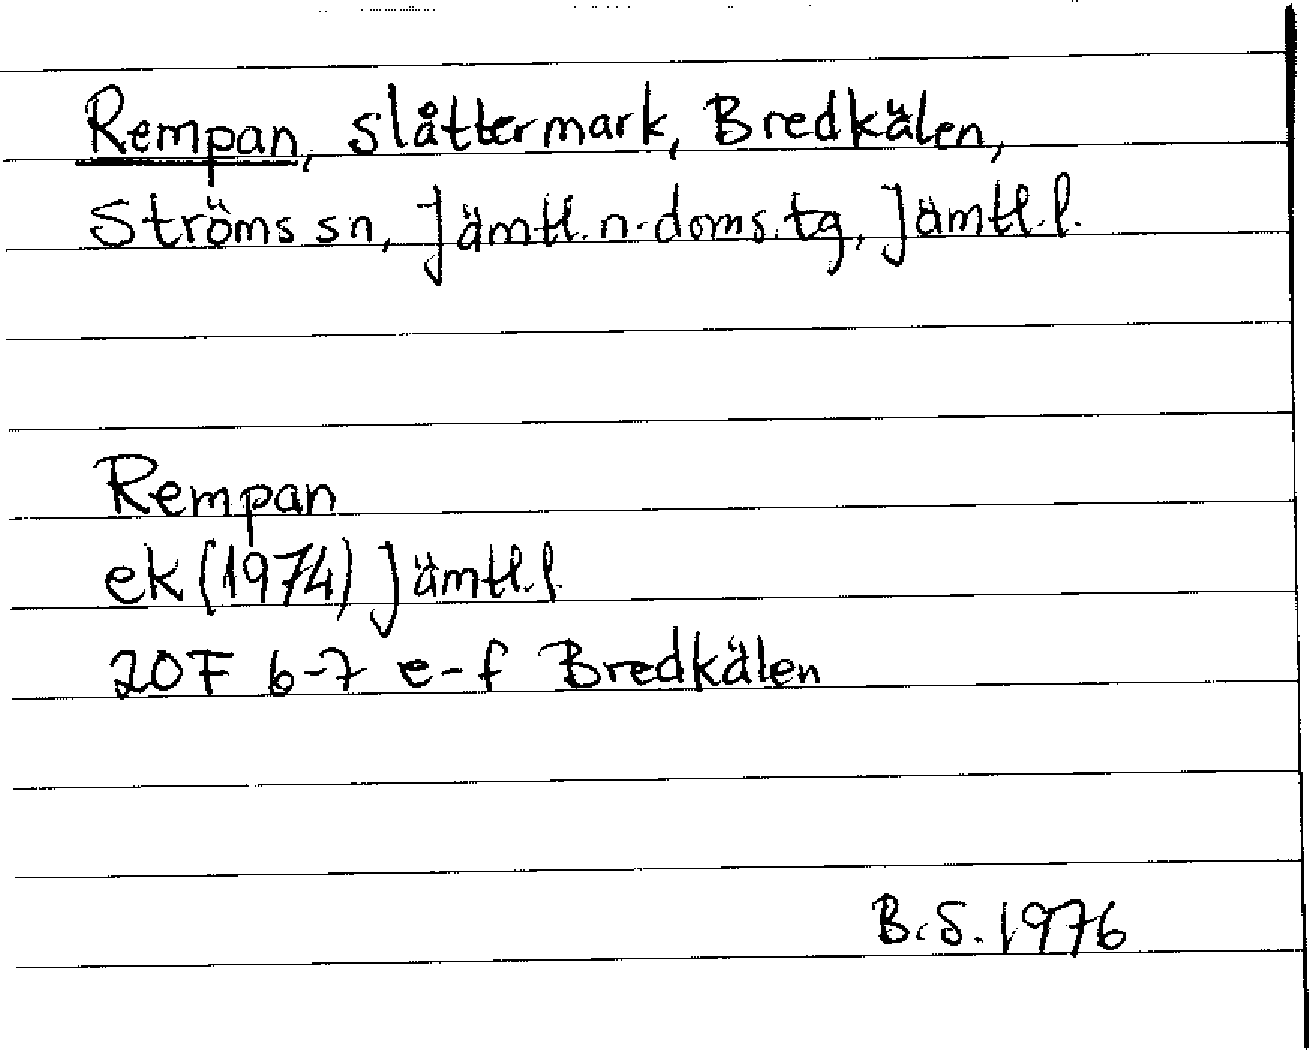 Rempan, slåttermark, Bredkälen,
Ströms sn, Jämtl. n. doms. tg, Jämtl. l.
Rempan
ek (1974) Jämtl. l.
20F 6-7 e-f Bredkälen
B.S. 1976